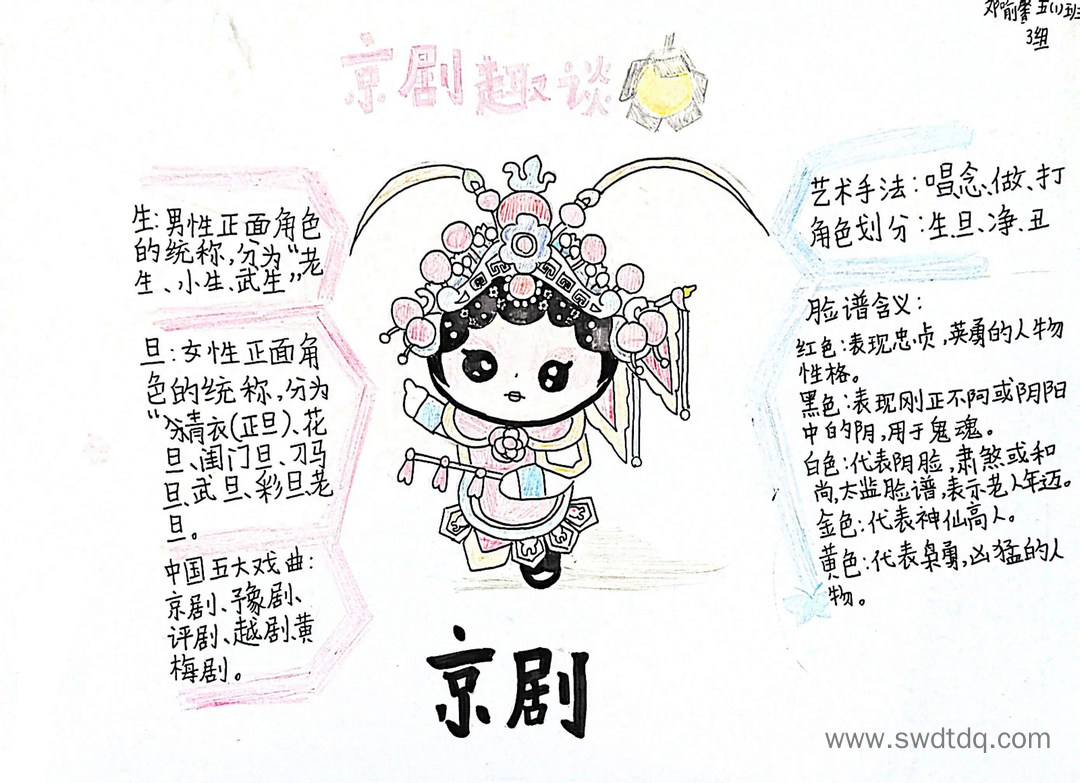 五(1)班
3组
京剧趣谈
生:男性正面角色
的统称,分为“老
生、小生、武生”
旦:女性正面角
色的统称,分为
“青衣(正旦)、花
旦、闺门旦、刀马
旦、武旦、彩旦、老
旦。
中国五大戏曲:
京剧、豫剧、
评剧、越剧、黄
梅剧。
京剧
艺术手法:唱、念、做、打
角色划分:生、旦、净、丑
脸谱含义:
红色:表现忠贞,英勇的人物
性格。
黑色:表现刚正不阿或阴阳
中的阴,用于鬼魂。
白色:代表阴脸,肃煞或和
尚,太监脸谱,表示老人年迈。
金色:代表神仙高人。
黄色:代表枭勇,凶猛的人
物。
www.swdtdq.com